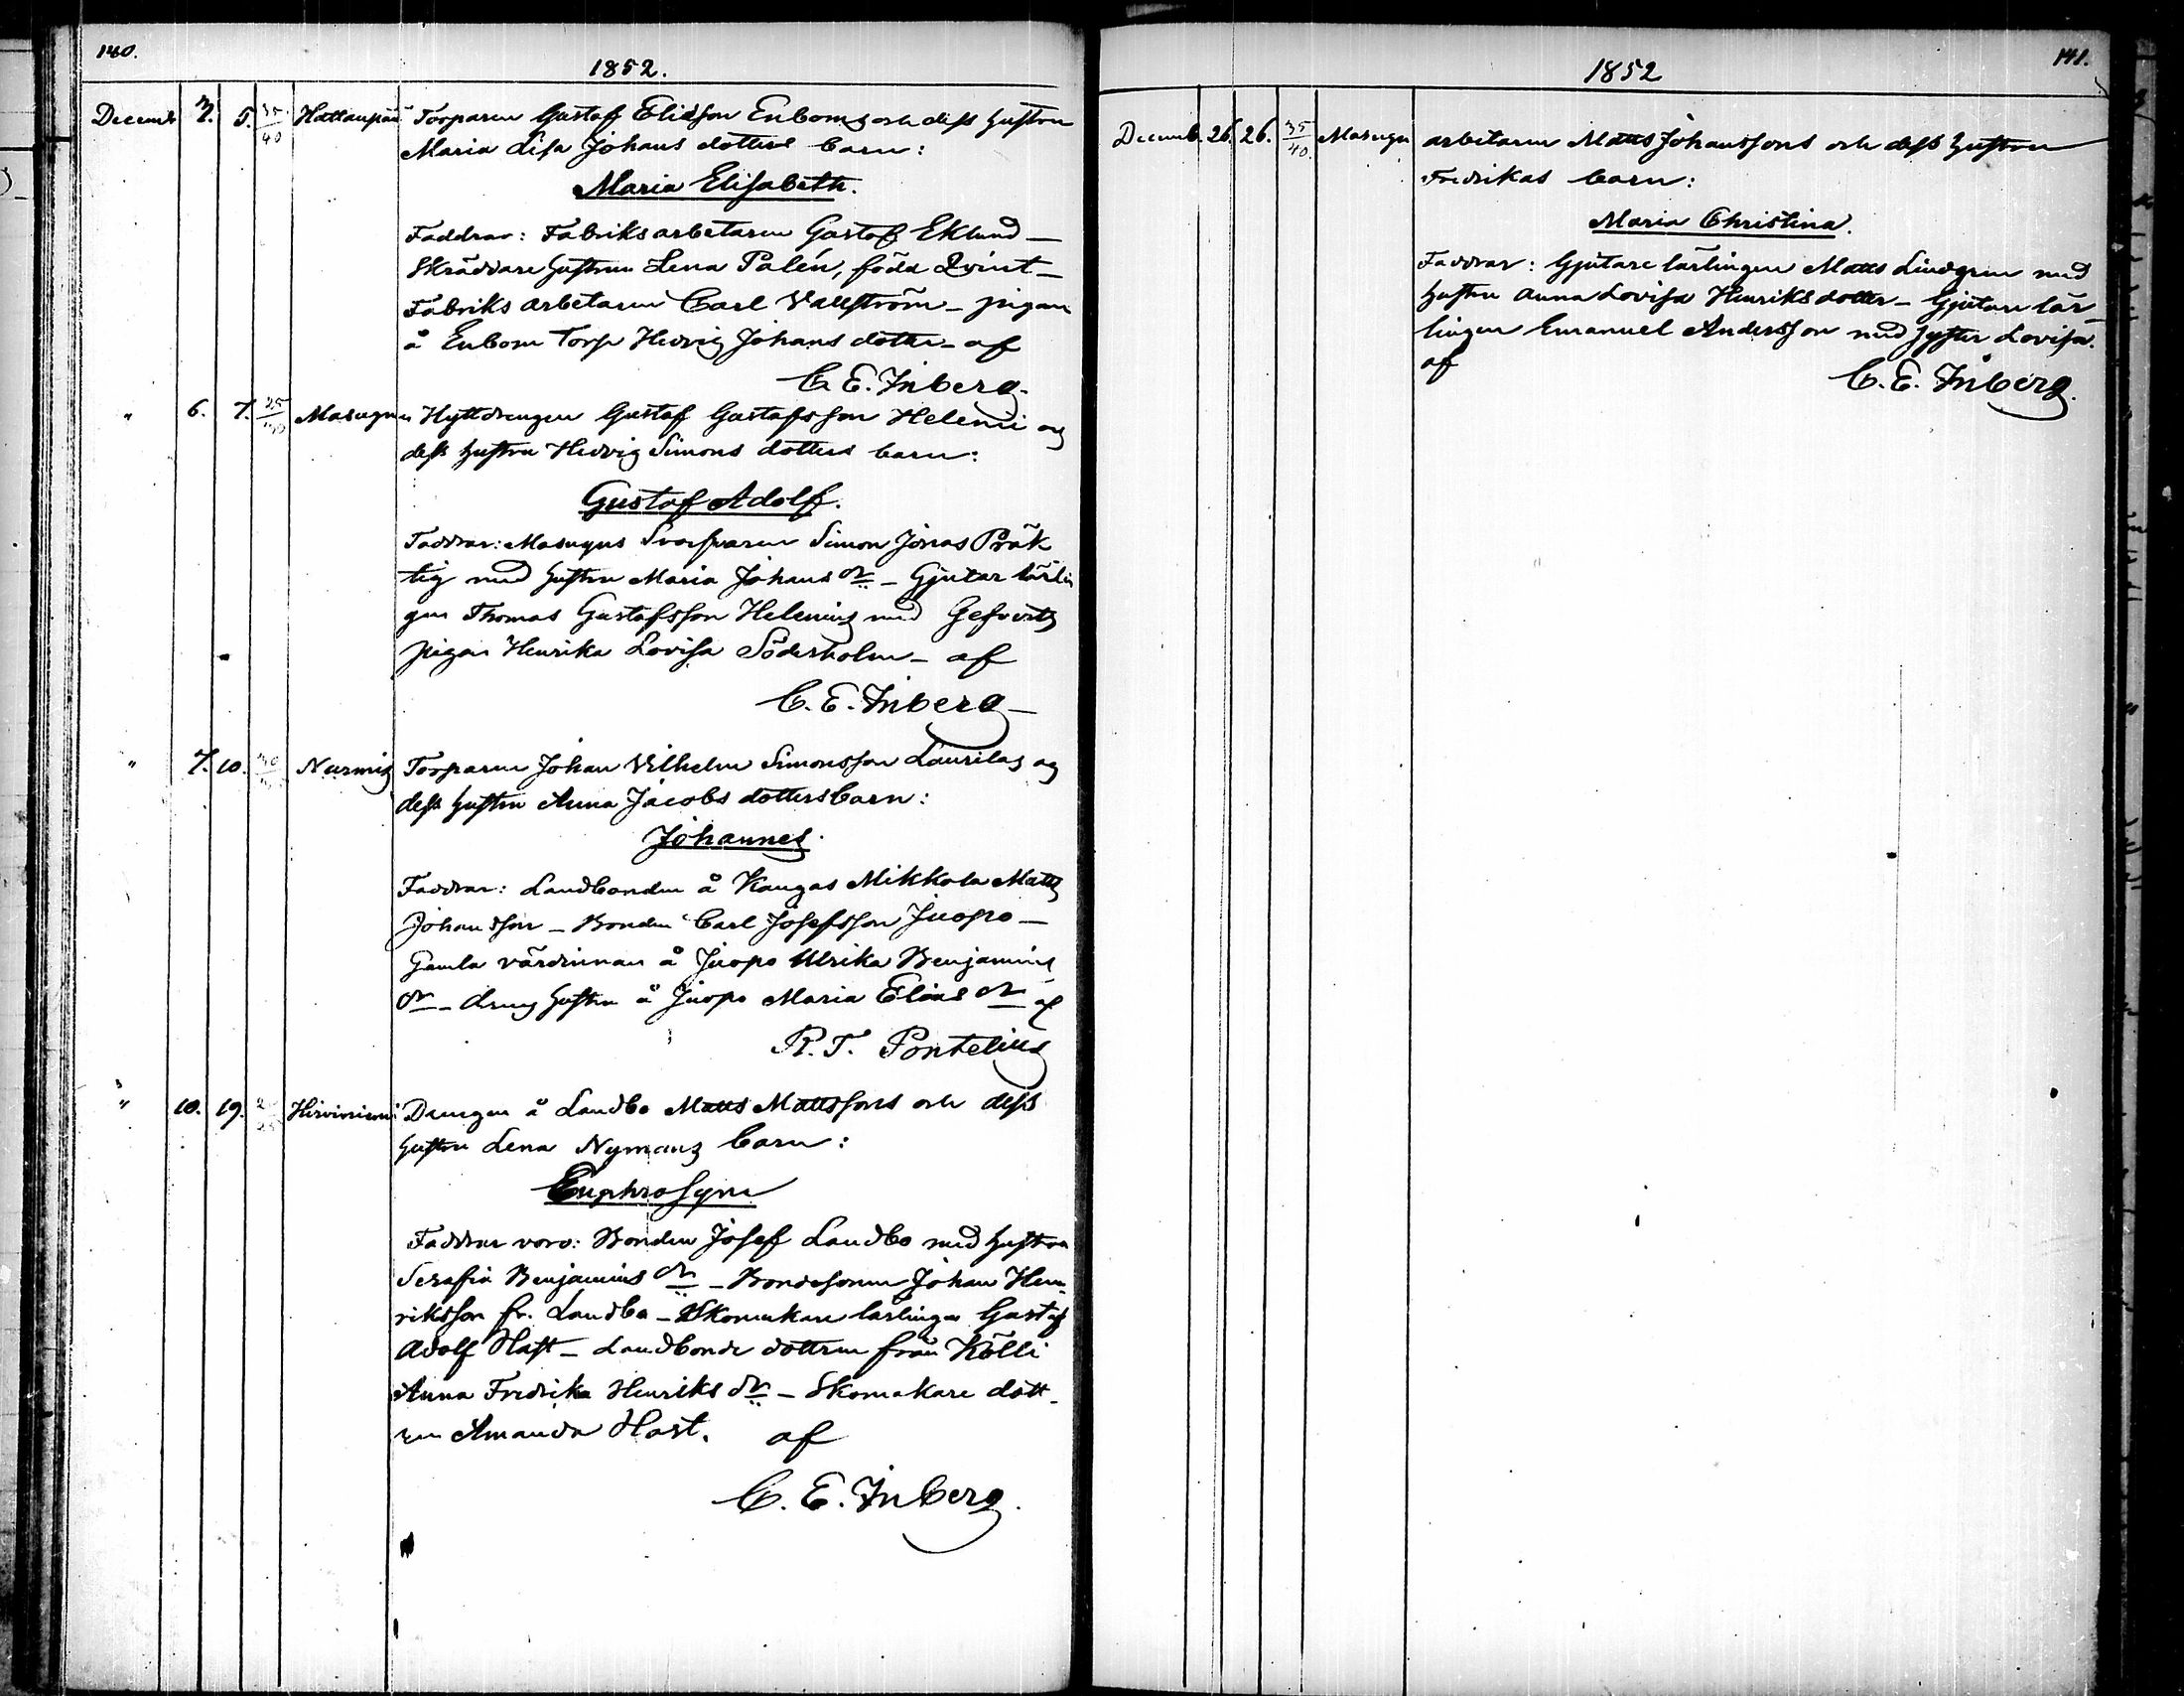 140.
1852.
Decemb. 3. 5. 35/40 Hattanpää Torparen Gustaf Eliasson Enboms och dess hustru
Maria Lisa Johans dotters barn:
Maria Elisabeth.
Faddrar: Fabriksarbetaren Gustaf Eklund —
Skräddare hustrun Lena Palén, föda Qvint —
Fabriks arbetaren Carl Vallström — pigan
å Enbom Torp Hedvig Johans dotter — af
C. E. Inberg.
" 6. 7. Masugnen Hyttdrengen Gustaf Gustafsson Helenii og
dess hustru Hedvig Simons dotters barn:
Gustaf Adolf.
Faddrar: Masugns Simon Jonas Präk
tig med hustru Maria Johans dr — Gjutar lärlin
gen Thomas Gustafsson Helenius med
pigan Henrika Lovisa Söderholm — af
C. E. Inberg —
" 7. 10. Nurmis Torparen Johan Vilhelm Simonsson Laurilas og
dess hustru Anna Jacobs dotters barn:
Johannes.
Faddrar: Landbonden å Kangas Mikkola Matts
Johansson — Bonden Carl Josefsson Juopo —
Gamla värdinnan å Juopo Ulrika Benjamins
dr — dreng hustru å Juopo Maria Elias dr af
R. T. Pontelius
" 10. 19. Hirviniemi Drengen å Landbo Matts Mattssons och dess
hustru Lena Nymans barn:
Euphrosyne
Faddrar voro: Bonden Josef Landbo med hustru
Serafia Benjamins dr — Bondesonen Johan Hen-
riksson fr. Landbo — Skomakare lärlingen Gustaf
Adolf Hast — Landbonde dottren från Kölli
Anna Fredrika Henriks dr — Skomakare dott-
ren Amanda Hast. af
C. E. Inberg.
141.
1852
Decemb. 26. 26. 35/40. Masugn arbetaren Matts Johanssons och dess hustru
Fredrikas barn:
Maria Christina.
Faddrar: Gjutare lärlingen Matts Lindgren med
hustru Anna Lovisa Henriks dotter — Gjutare lär-
lingen Emanuel Andersson med syster Lovisa.
af
C. E. Inberg.